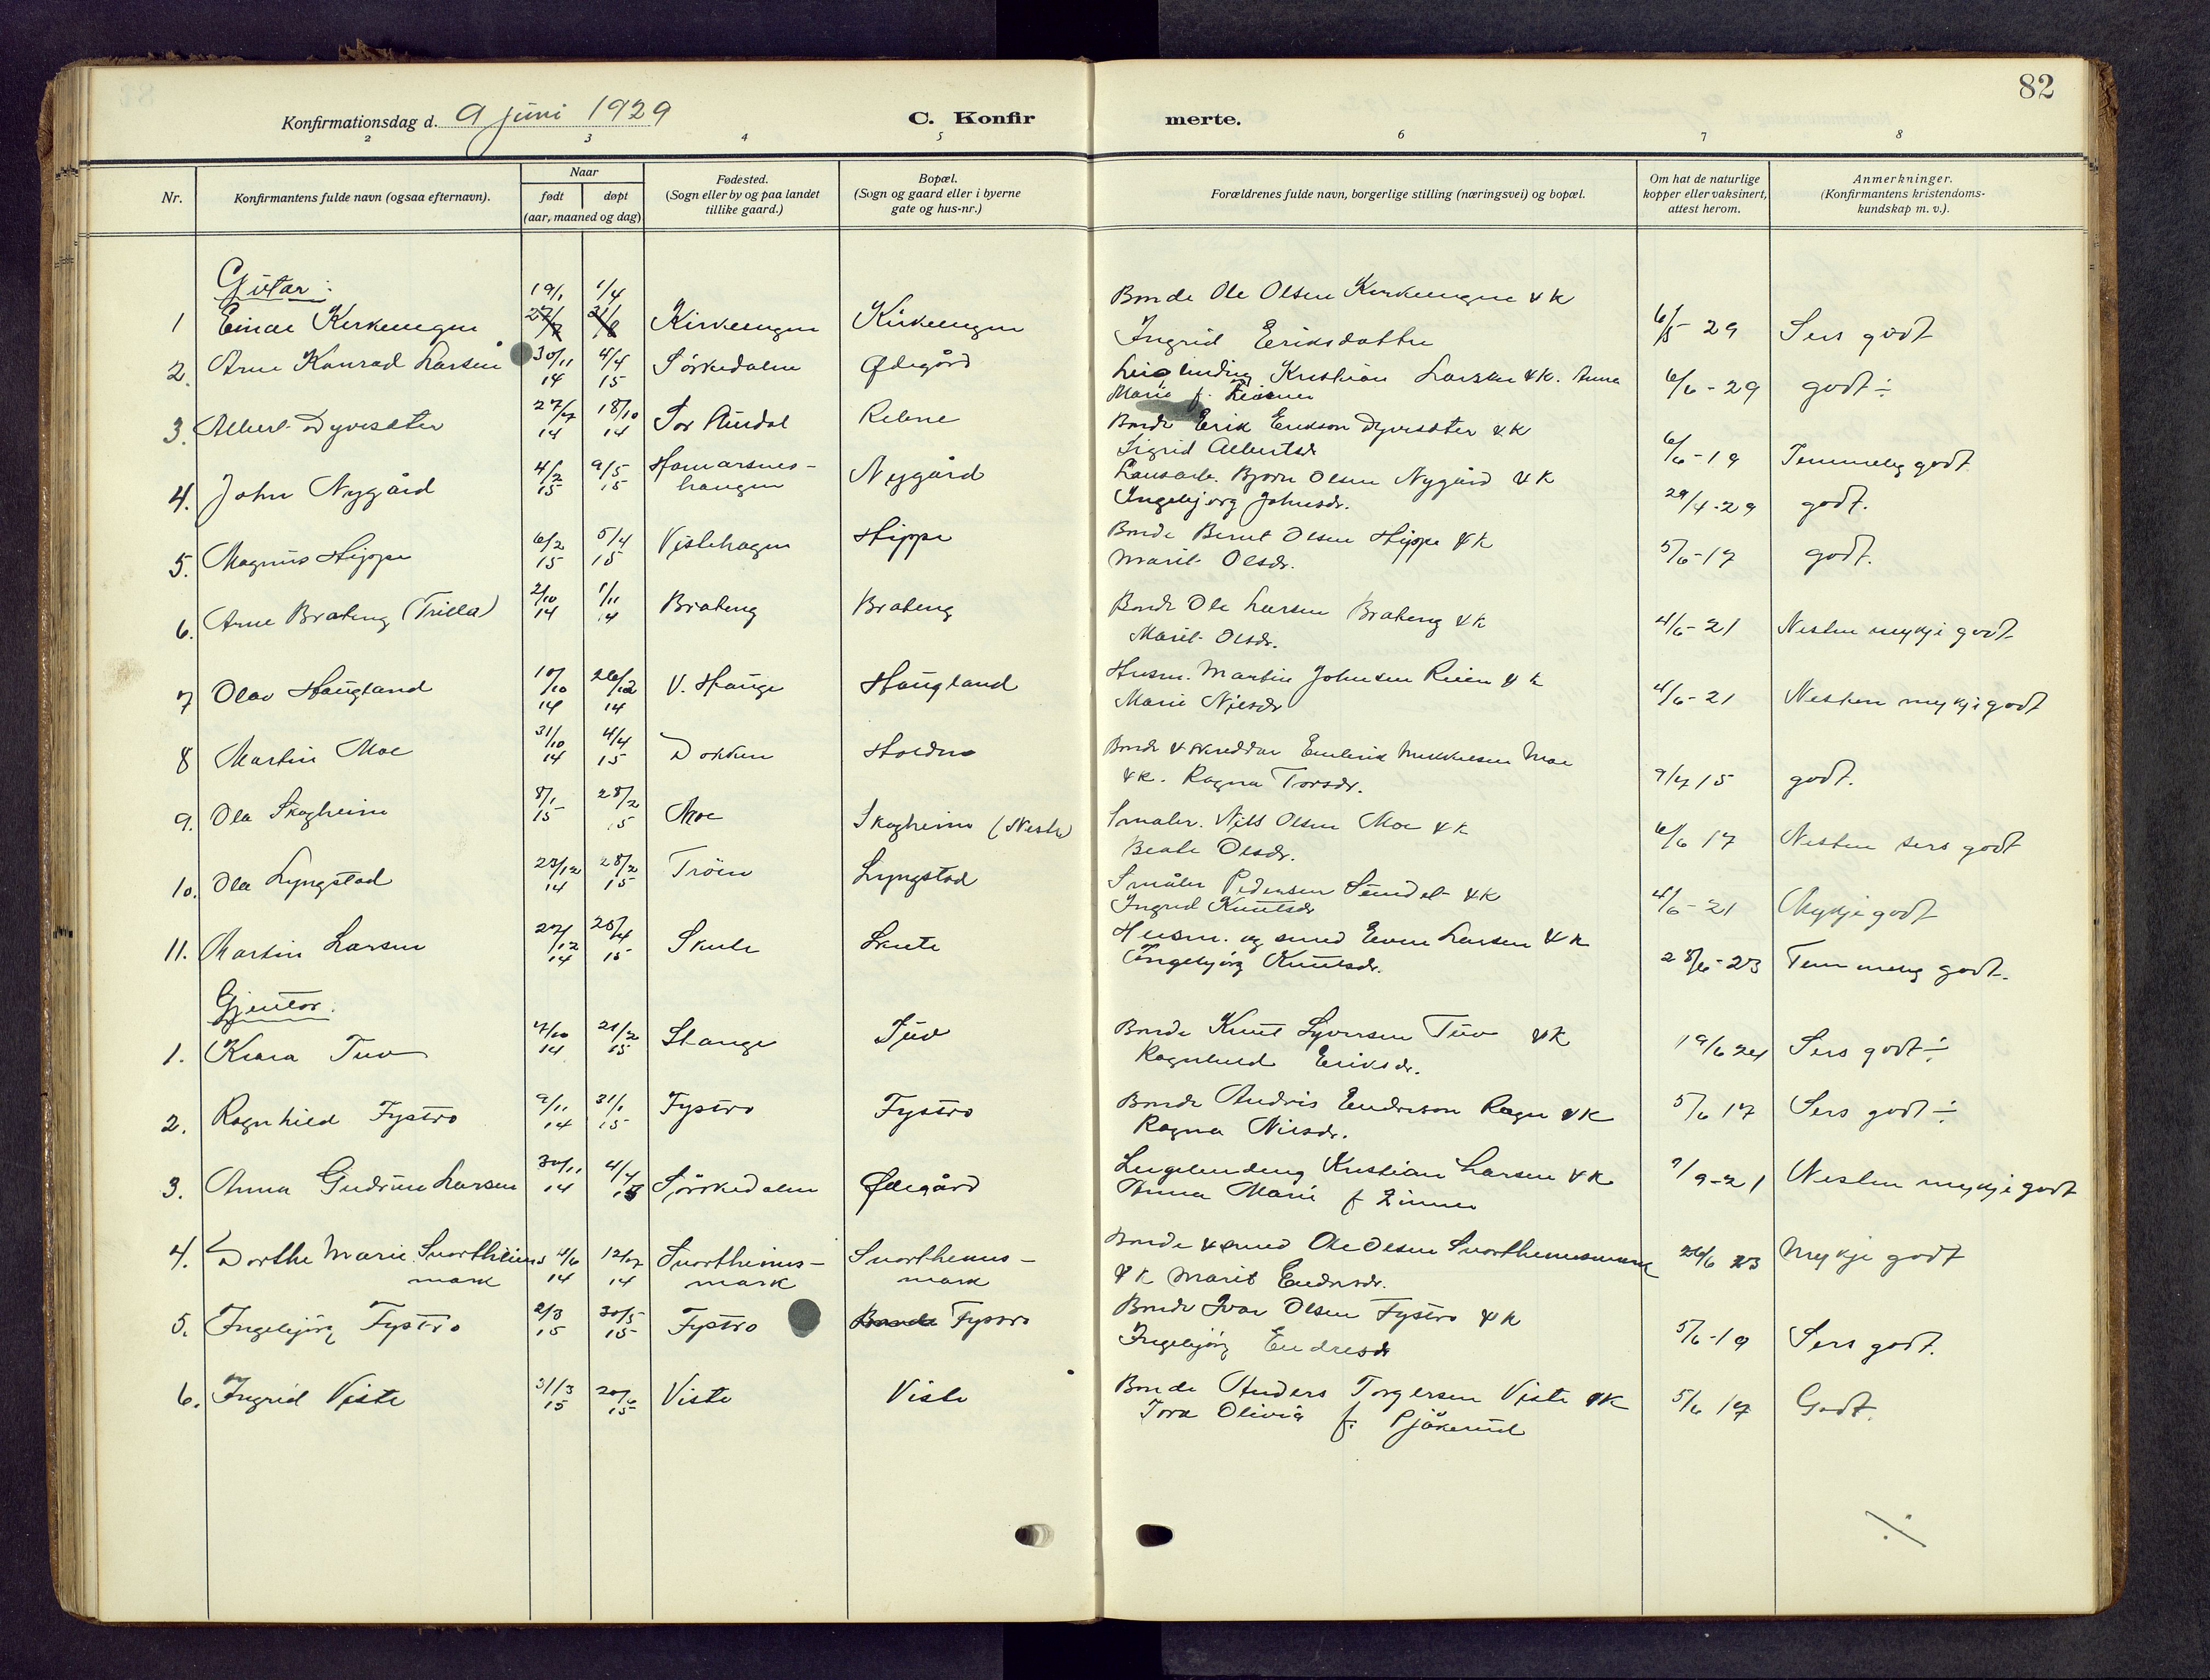 82
Konfirmationsdag d. 9 juni 1929
C. Konfirmerte.
2 3 4 5 6 7 8
Nr.
Konfirmantens fulde navn (ogsaa efternavn).
Naar
født døpt
(aar, maaned og dag)
Fødested.
(Sogn eller by og paa landet
tillike gaard.)
Bopæl.
(Sogn og gaard eller i byerne
gate og hus-nr.)
Forældrenes fulde navn, borgerlige stilling (næringsvei) og bopæl.
Om hat de naturlige
kopper eller vaksinert,
attest herom.
Anmerkninger.
(Konfirmantens kristendoms-
kundskap m. v.).
Gutar:
1 Einar Kirkeengen 19/1 1/4 Kirkeengen Kirkeengen Bonde Ole Olsen Kirkeengen & K
Ingrid Eriksdatter 6/5 29 Sers godt
2. Arne Konrad Larsen 30/11 14 4/4 15 Sørkedalen Ødegård Kristian Larsen & K. Anna
Marie f. 6/6-29 godt ÷
3. Albert Dyveseter 27/7 14 18/10 14 Sør Aurdal Bonde Erik Erikson Dyveseter & K
Sigrid Albertsdr 6/6-19 Temmeleg godt
4. John Nygård 4/2 15 9/5 15 Nygård Bjørn Olsen Nygård & K
Ingebjørg Johnsdr. 29/4-29 godt.
5. Magnus Hippe 6/2 15 5/4 15 Vistehagen Hippe Bonde Bernt Olsen Hippe & K
Marit Olsdr. 5/6-17 godt.
6. Arne Brateng (Trilla) 2/10 14 1/11 14 Brateng Brateng Bonde Ole Larsen Brateng & K
Marit Olsdr. 4/6-21 Nesten mykje godt
7 Olav Haugland 10/10 14 26/12 14 V. Hauge Haugland Husm. Martin Johnsen & K
Marie Nilsdr 4/6-21 Nesten mykje godt
8 Martin Moe 31/10 14 4/4 15 Dokken Bonde & skreddar Mikkelsen Moe
& K. Ragna Torsdr. 9/7 15 godt.
9. Ola Skogheim 8/1 15 28/2 15 Moe Skogheim (Neste) Nils Olsen Moe & K
Beate Olsdr. 6/6 17 Nesten sers godt
10. Ola Lyngstad 23/12 14 28/2 15 Trøen Lyngstad Pedersen & K
Ingrid Knutsdr 4/6-21 Mykje godt
11. Martin Larsen 27/12 14 25/4 15 Skute Skute Husm. og smed Even Larsen & K
Ingebjørg Knutsdr. 28/6-23 Temmeleg godt.
Gjentor:
1. Klara Tuv 7/10 14 21/2 15 Stange Tuv Bonde Knut Syversen Tuv & K
Ragnhild Eriksdr. 19/6 24 Sers godt ÷
2. Ragnhild Fystro 9/11 14 31/1 15 Fystro Fystro Bonde Andris Endreson Rogn & K
Ragna Nilsdr. 5/6 17 Sers godt ÷
3. Anna Gudrun Larsen 30/11 14 4/4 15 Sørkedalen Ødegård Leigelending Kristian Larsen & K
Anna Marie f 7/9-21 Nesten mykje godt
4. Dorthe Marie Svartheims
mark 4/6 14 12/7 14 Svartheims-
mark Svarthems-
mark Bonde & smed Ole Olsen Svarthemsmark
& K Marit Endresdr. 26/6 23 Mykje godt
5. Ingebjørg Fystro 2/3 15 30/5 15 Fystro Fystro Bonde Ivar Olsen Fystro & K
Ingebjørg Endresdr 5/6-19 Sers godt.
6. Ingrid Viste 31/3 15 20/6 15 Viste Viste Bonde Anders Torgersen Viste & K
Tora Olivia f. 5/6 17 Godt.